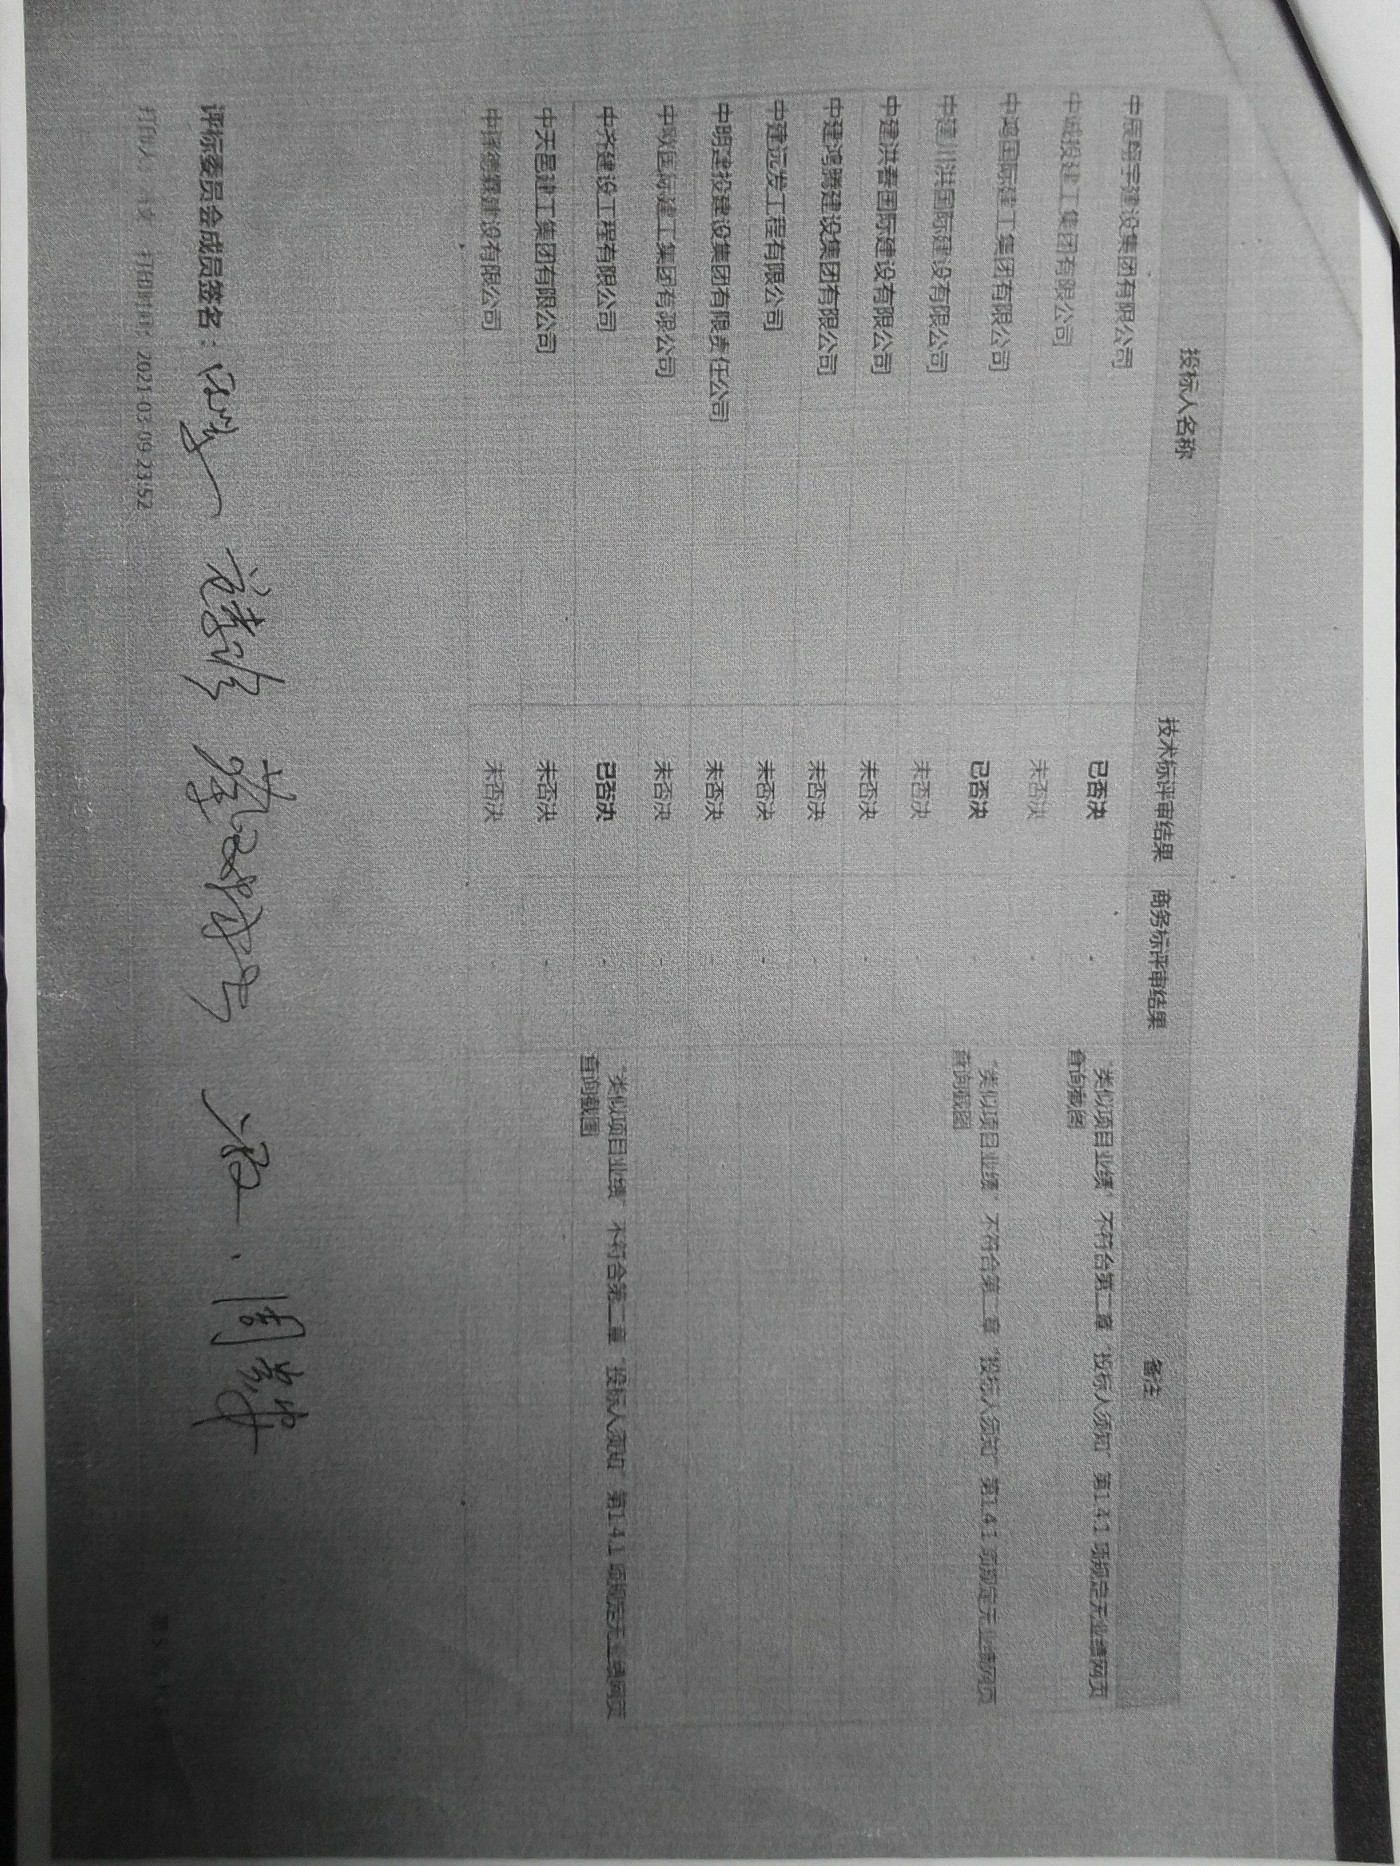 投标人名称 技术标评审结果 商务标评审结果 备注
中辰翔宇建设集团有限公司 已否决 - "类似项目业绩"不符合第二章"投标人须知"第1.4.1 项规定无业绩网页
查询截图
中城投建工集团有限公司 未否决 -
中鸿国际建工集团有限公司 已否决 - "类似项目业绩"不符合第二章"投标人须知"第1.4.1 项规定无业绩网页
查询截图
中建川洪国际建设有限公司 未否决 -
中建洪春国际建设有限公司 未否决 -
中建鸿腾建设集团有限公司 未否决 -
中建远发工程有限公司 未否决 -
中明建投建设集团有限责任公司 未否决 -
中欧国际建工集团有限公司 未否决 -
中齐建设工程有限公司 已否决 - "类似项目业绩"不符合第二章"投标人须知"第1.4.1 项规定无业绩网页
查询截图
中天邑建工集团有限公司 未否决 -
中泽德霖建设有限公司 未否决 -
评标委员会成员签名:
打印人: 打印时间: 2021-03-09 23:52